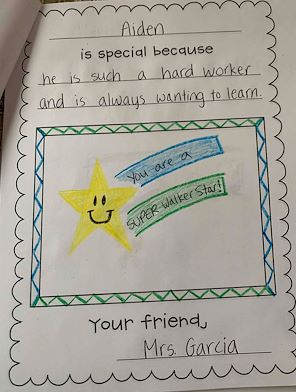 Aiden
is special because
he is such a hard worker
and is always wanting to learn.
You are a
SUPER Walker Star!
Your friend,
Mrs. Garcia